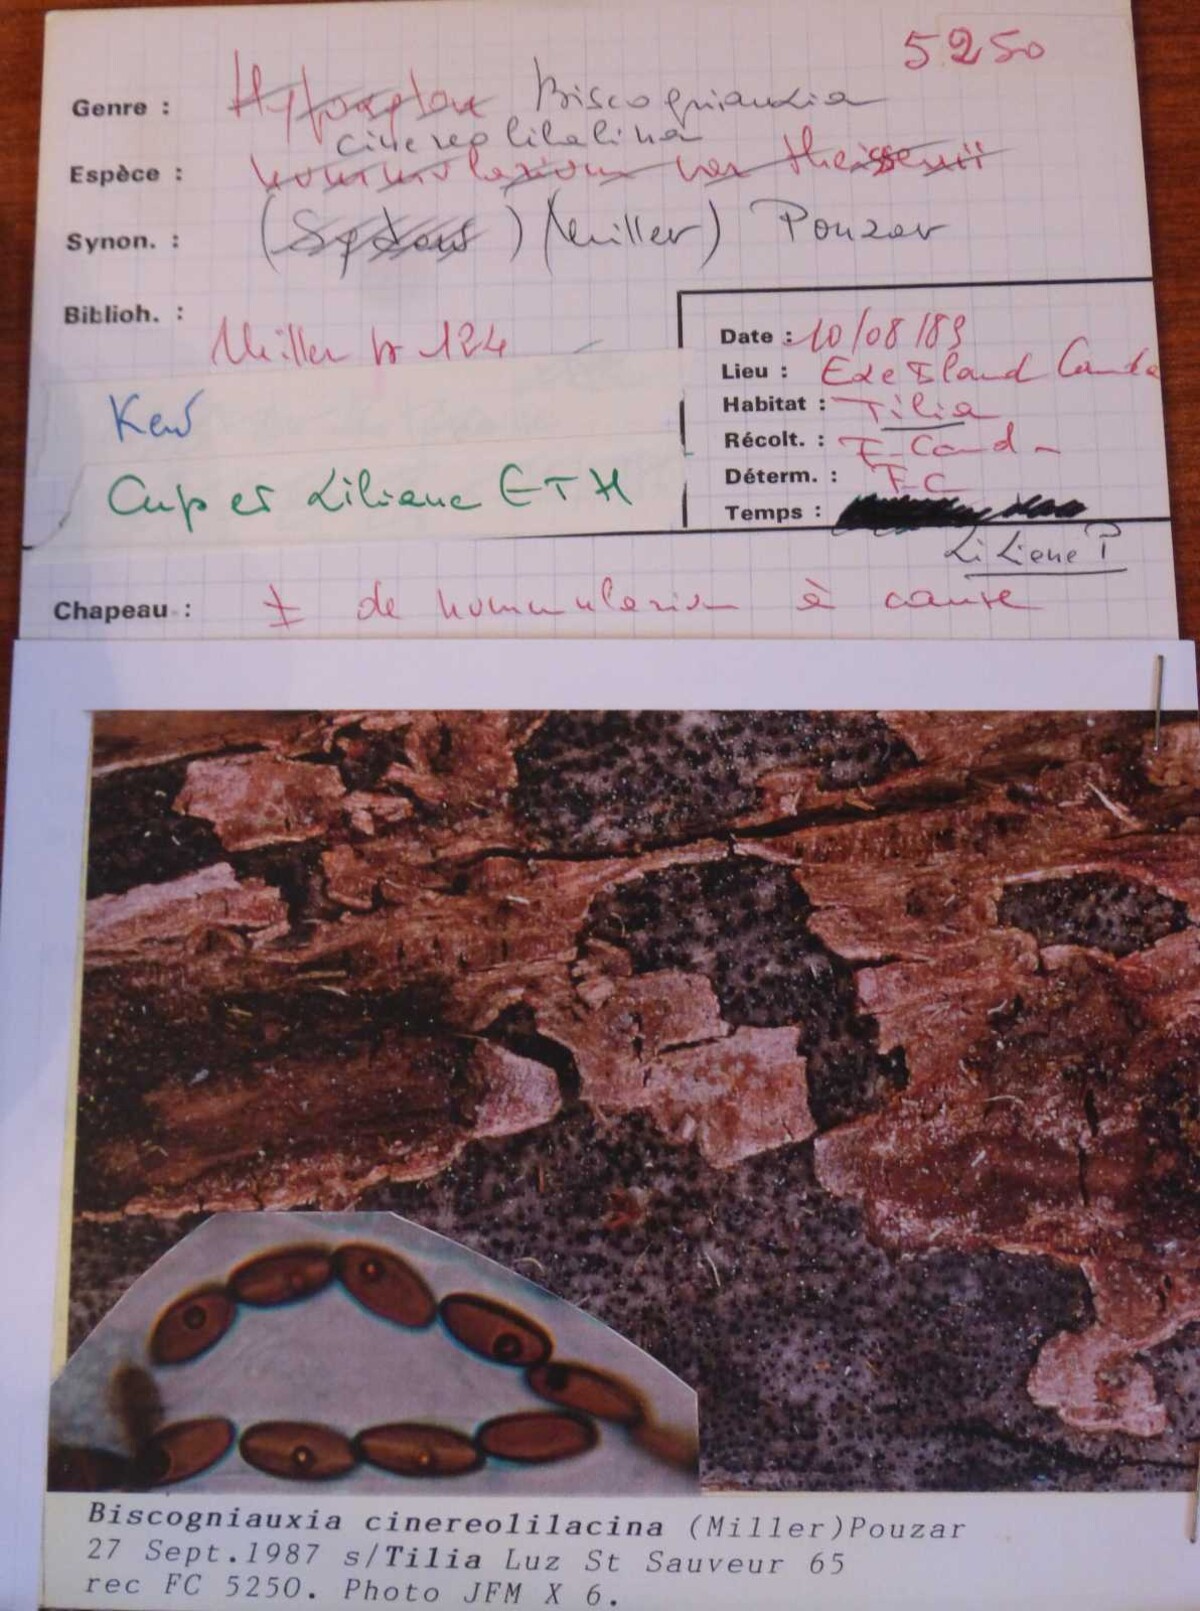 5250
Genre : Hypoxylon Biscogniauxia
cinereolilalina
Espèce : nummularium var theissenii
Synon. : (Sydows) (Miller) Pouzar
Biblioh. :
Miller p 124
Date : 10/08/89
Lieu : Exe Island Canda
Kew
Habitat : Tilia
Récolt. : F. Cand -
Cup et Liliane ETH
Déterm. : F C
Temps :
Liliane P
Chapeau : ≠ de nummularium à cause
Biscogniauxia cinereolilacina (Miller)Pouzar
27 Sept.1987 s/Tilia Luz St Sauveur 65
rec FC 5250. Photo JFM X 6.